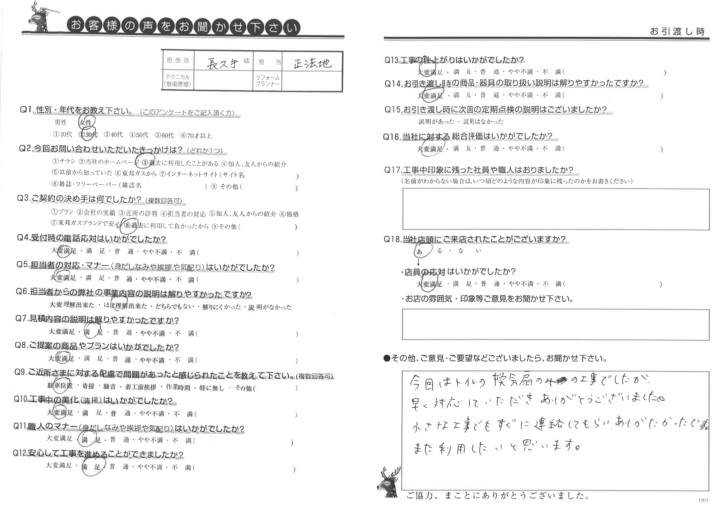 お客様の声をお聞かせ下さい
担当店 長久手 店 担当 正法地
テクニカル（現場管理） リフォームプランナー
Q1.性別・年代をお教え下さい。（このアンケートをご記入頂く方）
男性 女性
①20代 ②30代 ③40代 ④50代 ⑤60代 ⑥70才以上
Q2.今回お問い合わせいただいたきっかけは？（どれか1つ）
①チラシ ②当社のホームページ ③過去に利用したことがある ④知人、友人からの紹介
⑤以前から知っていた ⑥東邦ガスから ⑦インターネットサイト（サイト名 ）
⑧雑誌・フリーペーパー（雑誌名 ） ⑨その他（ ）
Q3.ご契約の決め手は何でしたか？（複数回答可）
①プラン ②会社の実績 ③近所の評判 ④担当者の対応 ⑤知人、友人からの紹介 ⑥価格
⑦東邦ガスブランドで安心 ⑧過去に利用して良かったから ⑨その他（ ）
Q4.受付時の電話応対はいかがでしたか？
大変満足・満 足・普 通・やや不満・不 満（ ）
Q5.担当者の対応・マナー（身だしなみや挨拶や気配り）はいかがでしたか？
大変満足・満 足・普 通・やや不満・不 満（ ）
Q6.担当者からの弊社の事業内容の説明は解りやすかったですか？
大変理解出来た・ほぼ理解出来た・どちらでもない・解りにくかった・説明がなかった
Q7.見積内容の説明は解りやすかったですか？
大変満足・満 足・普 通・やや不満・不 満（ ）
Q8.ご提案の商品やプランはいかがでしたか？
大変満足・満 足・普 通・やや不満・不 満（ ）
Q9.ご近所さまに対する配慮で問題があったと感じられたことを教えて下さい。（複数回答可）
駐車位置・清掃・騒音・着工前挨拶・作業時間・特に無し・その他（ ）
Q10.工事中の美化（清掃）はいかがでしたか？
大変満足・満 足・普 通・やや不満・不 満（ ）
Q11.職人のマナー（身だしなみや挨拶や気配り）はいかがでしたか？
大変満足・満 足・普 通・やや不満・不 満（ ）
Q12.安心して工事を進めることができましたか？
大変満足・満 足・普 通・やや不満・不 満（ ）
お引渡し時
Q13.工事の仕上がりはいかがでしたか？
大変満足・満 足・普 通・やや不満・不 満（ ）
Q14.お引き渡し時の商品・器具の取り扱い説明は解りやすかったですか？
大変満足・満 足・普 通・やや不満・不 満（ ）
Q15.お引き渡し時に次回の定期点検の説明はございましたか？
説明があった・説明はなかった
Q16.当社に対する総合評価はいかがでしたか？
大変満足・満 足・普 通・やや不満・不 満（ ）
Q17.工事中印象に残った社員や職人はおりましたか？
（名前がわからない場合は、いつ頃どのような内容が印象に残ったのかをお書きください）
Q18.当社店頭にご来店されたことがございますか？
あ る・な い
・店員の応対はいかがでしたか？
大変満足・満 足・普 通・やや不満・不 満（ ）
・お店の雰囲気・印象等ご意見をお聞かせ下さい。
●その他、ご意見・ご要望などございましたら、お聞かせ下さい。
今回はトイレの換気扇のみの工事でしたが
早く対応していただきありがとうございました。
小さな工事でもすぐに連絡してもらいありがたかったです
また利用したいと思います。
ご協力、まことにありがとうございました。